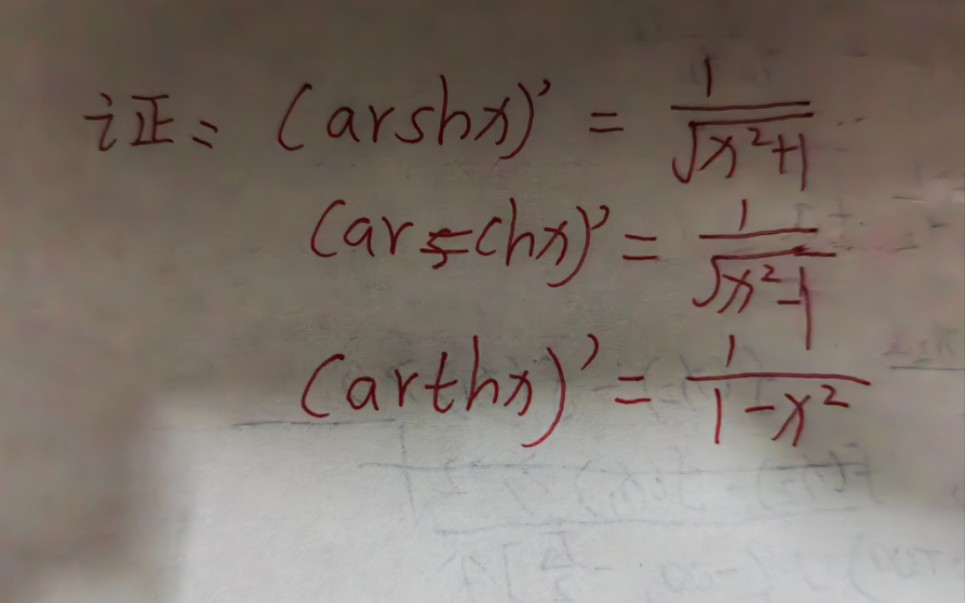 证: (arshx)' = 1/√(x²+1)
(archx)' = 1/√(x²-1)
(arthx)' = 1/(1-x²)